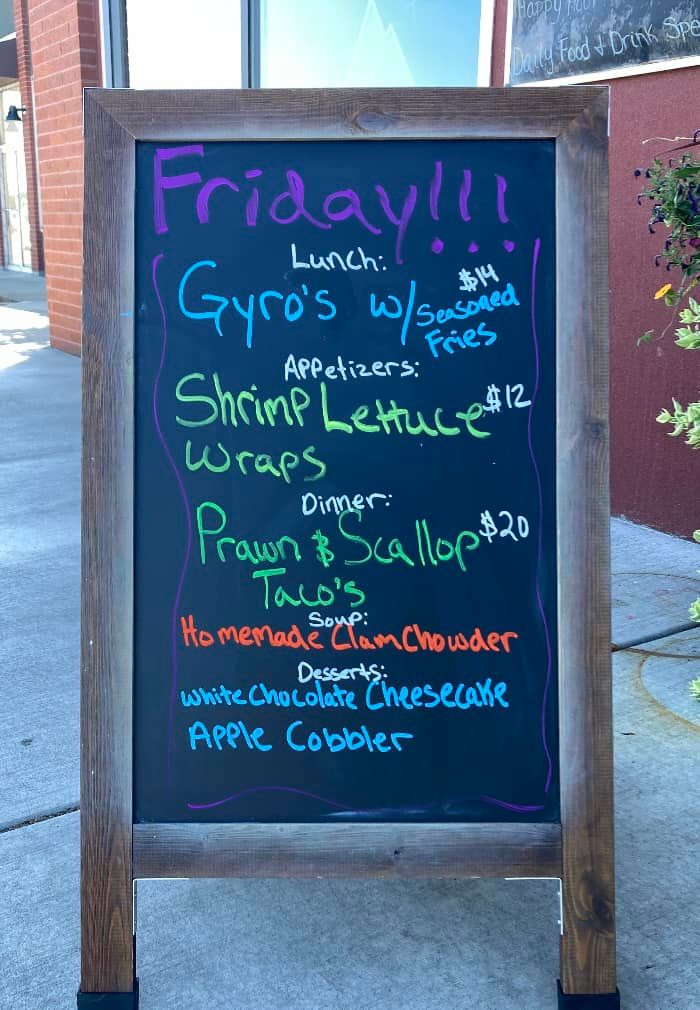 Happy Hour
Daily Food & Drink Spe
Friday!!!
Lunch:
Gyro's w/ Seasoned $14
Fries
Appetizers:
Shrimp Lettuce $12
Wraps
Dinner:
Prawn & Scallop $20
Taco's
Soup:
Homemade Clam Chowder
Desserts:
White Chocolate Cheesecake
Apple Cobbler